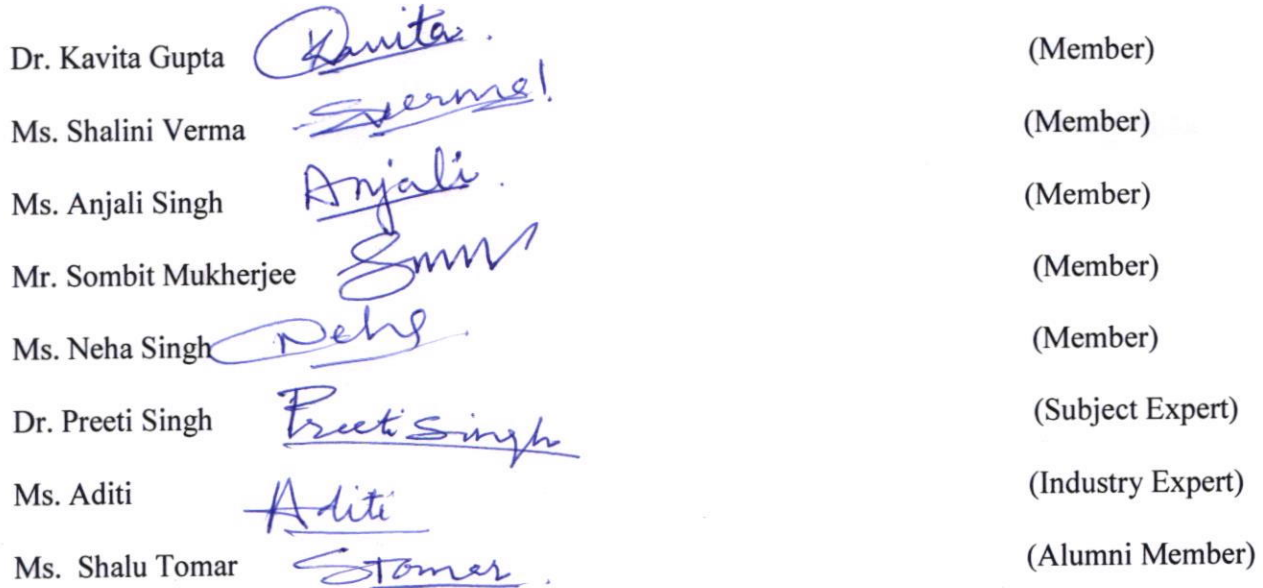 Dr. Kavita Gupta Kavita. (Member)
Ms. Shalini Verma SVerma! (Member)
Ms. Anjali Singh Anjali. (Member)
Mr. Sombit Mukherjee (Member)
Ms. Neha Singh Neha (Member)
Dr. Preeti Singh Preeti Singh (Subject Expert)
Ms. Aditi Aditi (Industry Expert)
Ms. Shalu Tomar STomar. (Alumni Member)